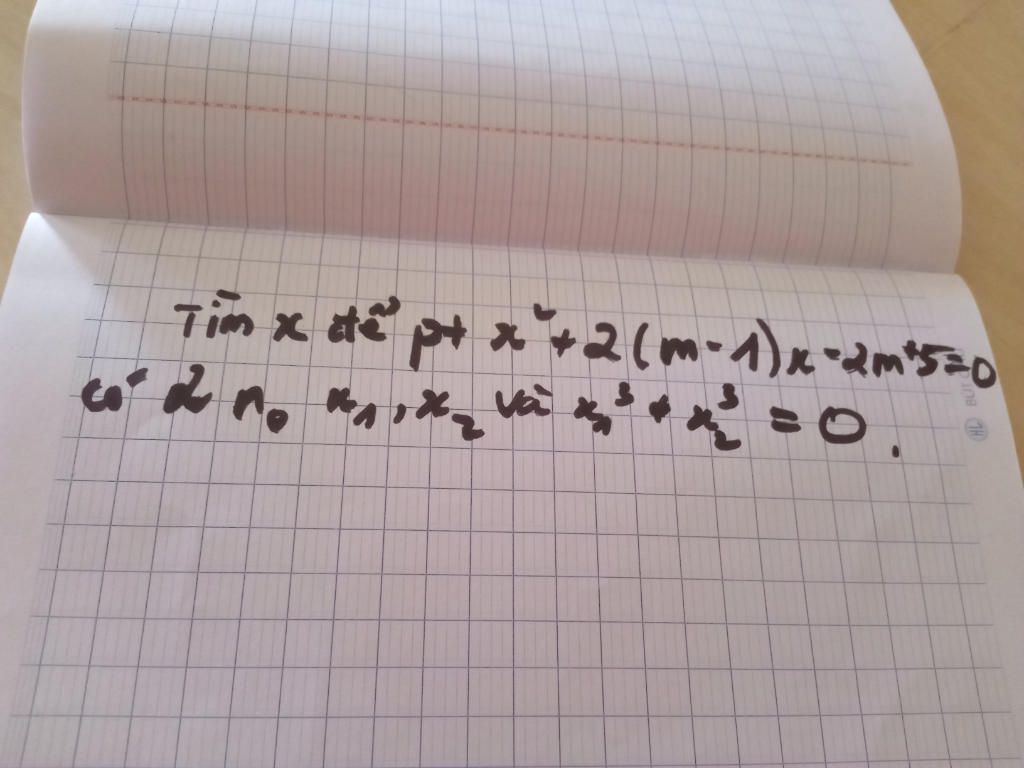 Tìm x để pt x² + 2(m-1)x - 2m + 5 = 0
có 2 n₀ x₁, x₂ và x₁³ + x₂³ = 0.